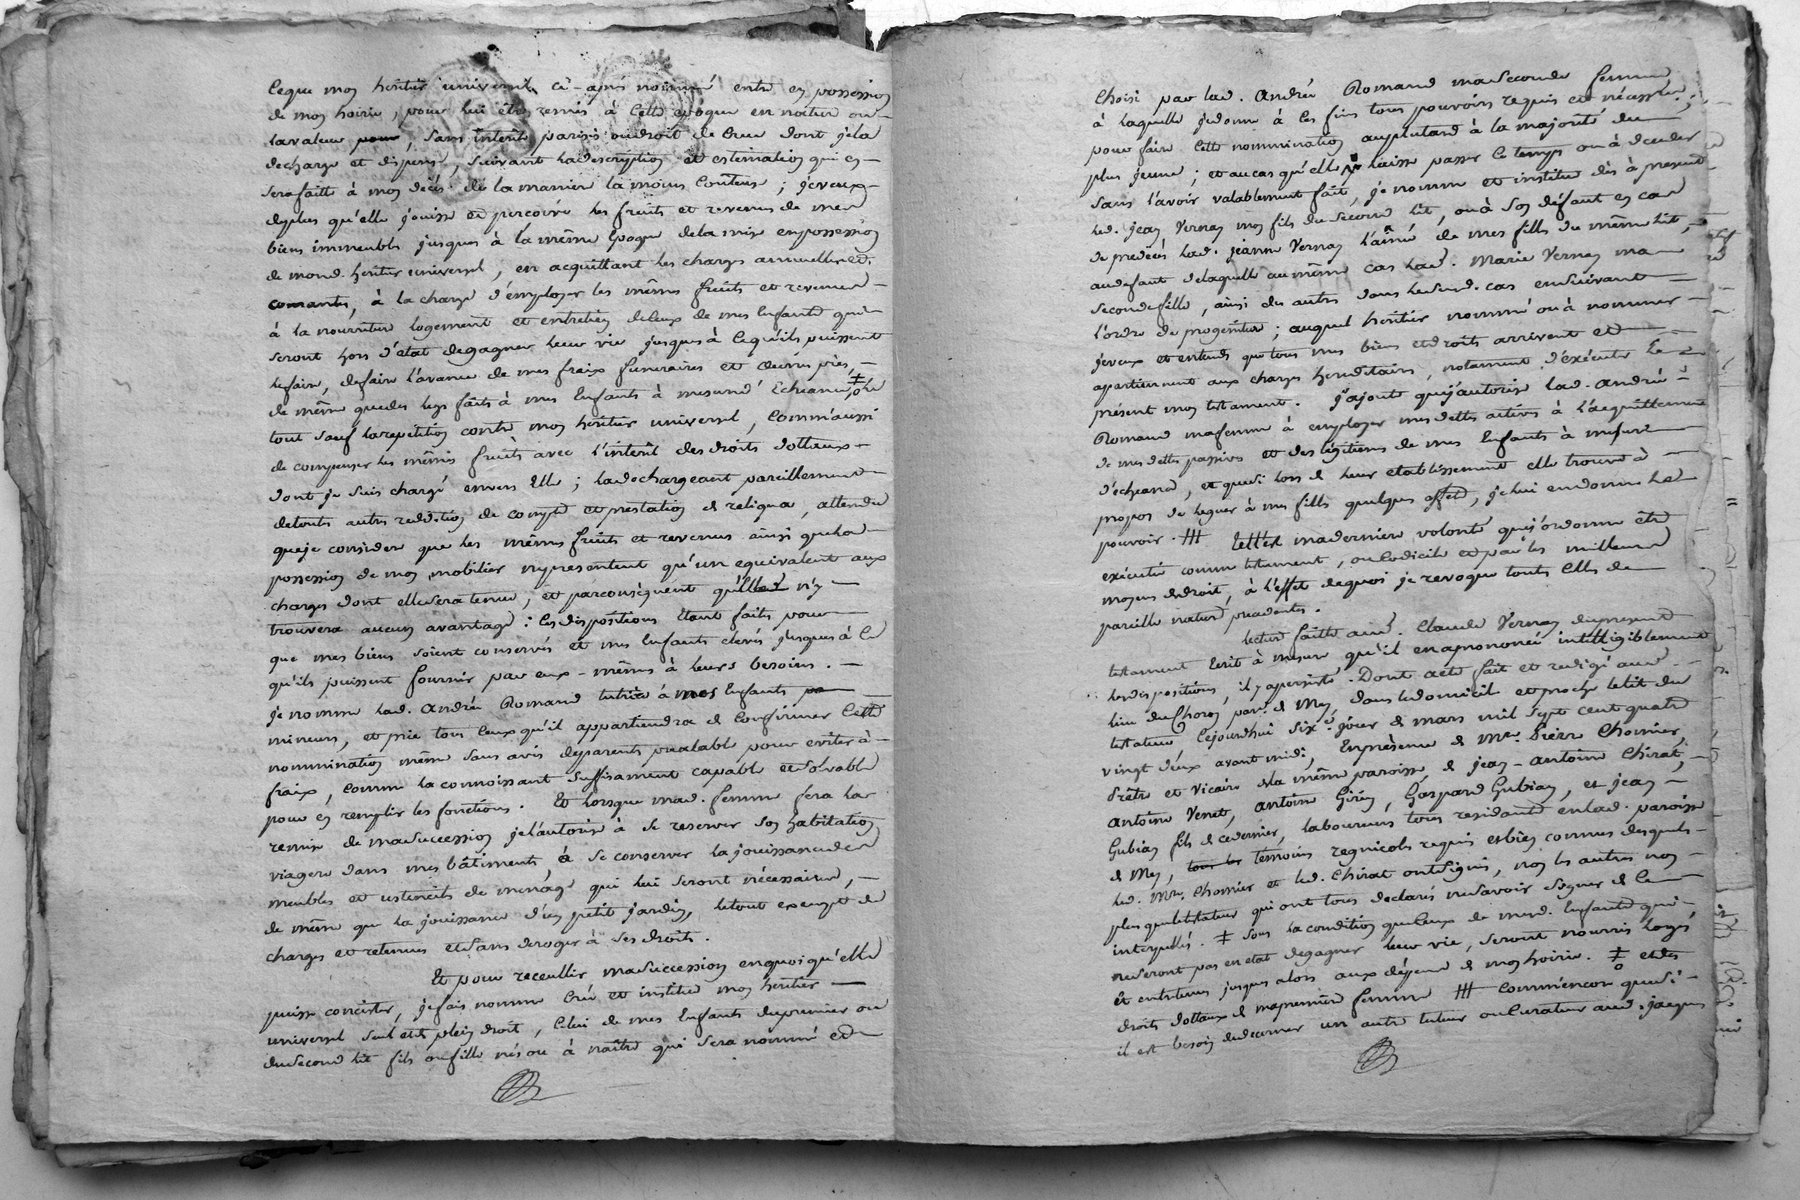 ceque mon héritier universel ci-après nommé entre en possession
de mon hoirie, pour lui être remis à cette époque en nature ou
la valeur, sans intérêt parisis ou droit de crue dont je la
decharge et dispense, suivant la description et estimation qui en
sera faitte à mon décès de la maniere la moins couteuse ; je veux
deplus qu'elle jouisse et perçoive les fruits et revenus de mes
biens immeubles jusques à la même époque de la mise en possession
de mond. héritier universel, en acquittant les charges annuelles et
courantes, à la charge d'employer les mêmes fruits et revenus
à la nourriture logement et entretien de ceux de mes enfants qui
seront hors d'état de gagner leur vie jusques à ce qu'ils puissent
le faire, de faire l'avance de mes fraix funeraires et œuvres pies,
de même que des legs faits à mes enfants à mesure d'échéance, ‡ le
tout sauf la repetition contre mon héritier universel, comm'aussi
de compenser les mêmes fruits avec l'intérêt des droits dottaux
dont je suis chargé envers elle ; la dechargeant pareillement
de toute autre reddition de compte et prestation de reliqua, attendu
que je considere que les mêmes fruits et revenus ainsi que la
possession de mon mobilier representent qu'un equivalent aux
charges dont elle sera tenue, et par conséquent qu'elle n'y
trouvera aucun avantage : ces dispositions étant faites pour
que mes biens soient conservés et mes enfants élevés jusques à ce
qu'ils puissent fournir par eux-mêmes à leurs besoins.
je nomme lad. andrée Romand tutrice à mes enfants
mineurs, et prie tous ceux qu'il appartiendra de confirmer cette
nommination même sans avis de parents prealable pour eviter à
fraix, comme la connoissant suffisament capable et solvable
pour en remplir les fonctions. Et lorsque mad. femme fera la
remise de ma succession je l'autorise à se reserver son habitation
viagere dans mes bâtiments, à se conserver la jouissance des
meubles et ustenciles de menage qui lui seront nécessaires,
de même que la jouissance d'un petit jardin, le tout exempt de
charges et retenues et sans deroger à ses droits.
Et pour recueillir ma succession en quoi qu'elle
puisse consister, je fais nomme crée et institue mon héritier
universel seul et de plein droit, celui de mes enfants du premier ou
du second lit fils ou fille nés ou à naître qui sera nommé et
choisi par lad. andrée Romand ma seconde femme,
à laquelle je donne à ces fins tous pouvoirs requis et nécessaires
pour faire cette nommination au plutard à la majorité du
plus jeune ; et au cas qu'elle laisse passer ce temps ou à deceder
sans l'avoir valablement fait, je nomme et institue dès à present
led. jean Vernay mon fils du second lit, ou à son défaut en cas
de predécès lad. jeanne Vernay l'aînée de mes filles du même lit,
au defaut de laquelle au même cas lad. Marie Vernay ma
seconde fille, ainsi des autres dans le susd. cas en suivant
l'ordre de progéniture ; auquel héritier nommé ou à nommer
je veux et entends que tous mes biens et droits arrivent et
appartiennent aux charges hereditaires, notament d'exécuter le
présent mon testament. j'ajoute que j'autorise lad. andrée
Romand ma femme à employer mes dettes actives à l'acquittement
de mes dettes passives et des légitimes de mes enfants à mesure
d'écheance, et que si lors de leur etablissement elle trouve à
propos de leguer à mes filles quelques effets, je lui en donne le
pouvoir. ‡‡ telle est ma derniere volonté que j'ordonne être
exécutée comme testament, ou codicile et par les meilleurs
moyens de droit, à l'effet de quoi je revoque toutes celles de
pareille nature precedentes.
lecture faitte aud. Claude Vernay du present
testament écrit à mesure qu'il en a prononcé intelligiblement
les dispositions, il y a persisté. Dont acte fait et redigé aud.
lieu du Choron par. de Mey, dans le domicile et proche le lit du
testateur, cejourdhui sixe. jour de mars mil sept cent quatre
vingt deux avant midi, En présence de Mre. Pierre Chomier,
Prêtre et Vicaire de la même paroisse, de jean-antoine Chirat,
antoine Venet, antoine Girin, Gaspard Gubian, et jean
Gubian fils de ce dernier, laboureurs tous residants en lad. paroisse
de Mey, temoins regnicoles requis et bien connus desquels
led. Mre. Chomier et led. Chirat ont signé, non les autres non
plus que le testateur qui ont tous declaré ne savoir signer de ce
interpellés. ‡ sous la condition que ceux de mesd. enfants qui
ne seront pas en etat de gagner leur vie, seront nourris logés
et entretenus jusques alors aux dépens de mon hoirie. ‡ et des
droits dottaux de ma premiere femme ‡‡ comm'encore que si
il est besoin de decerner un autre tuteur ou curateur aud. jacques